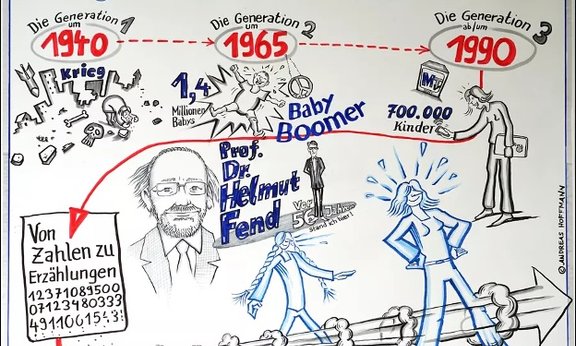 Die Generation 1
um
1940
Krieg
Die Generation 2
um
1965
1,4
Millionen
Babys
Baby
Boomer
Die Generation 3
ab/um
1990
700.000
Kinder
Prof.
Dr.
Helmut
Fend
Vor
56 Jahren
stand ich hier!
Von
Zahlen zu
Erzählungen
12371089500
07123480333
49110061543
© ANDREAS HOFFMANN